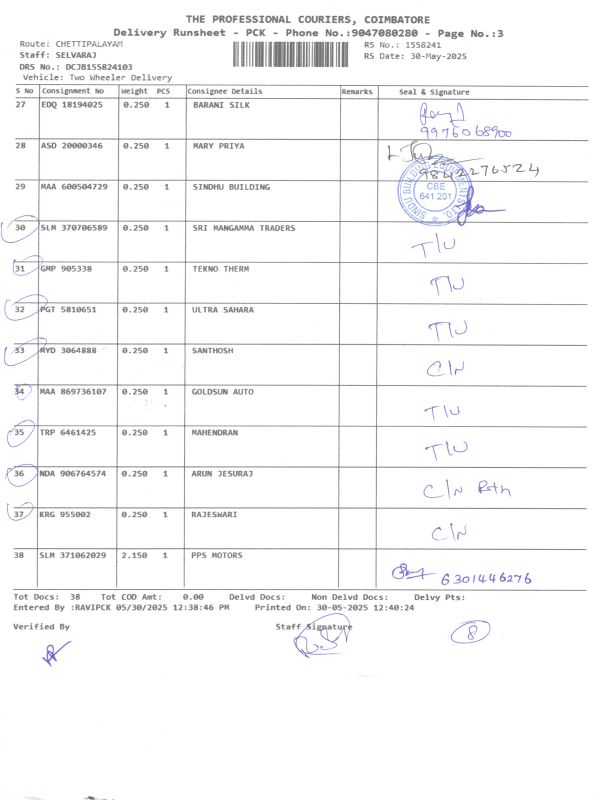 THE PROFESSIONAL COURIERS, COIMBATORE
Delivery Runsheet - PCK - Phone No.:9047080280 - Page No.:3
Route: CHETTIPALAYAM RS No.: 1558241
Staff: SELVARAJ RS Date: 30-May-2025
DRS No.: DCJB155824103
Vehicle: Two Wheeler Delivery
S No Consignment No Weight PCS Consignee Details Remarks Seal & Signature
27 EDQ 18194025 0.250 1 BARANI SILK
9976068900
28 ASD 20000346 0.250 1 MARY PRIYA
9842276524
29 MAA 600504729 0.250 1 SINDHU BUILDING
CBE
641 201
30 SLM 370706589 0.250 1 SRI MANGAMMA TRADERS T/U
31 GMP 905338 0.250 1 TEKNO THERM T/U
32 PGT 5810651 0.250 1 ULTRA SAHARA T/U
33 MYD 3064888 0.250 1 SANTHOSH C/N
34 MAA 869736107 0.250 1 GOLDSUN AUTO T/U
35 TRP 6461425 0.250 1 MAHENDRAN T/U
36 NDA 906764574 0.250 1 ARUN JESURAJ C/N
37 KRG 955002 0.250 1 RAJESWARI C/N
38 SLM 371062029 2.150 1 PPS MOTORS 6301446276
Tot Docs: 38 Tot COD Amt: 0.00 Delvd Docs: Non Delvd Docs: Delvy Pts:
Entered By :RAVIPCK 05/30/2025 12:38:46 PM Printed On: 30-05-2025 12:40:24
Verified By Staff Signature 8